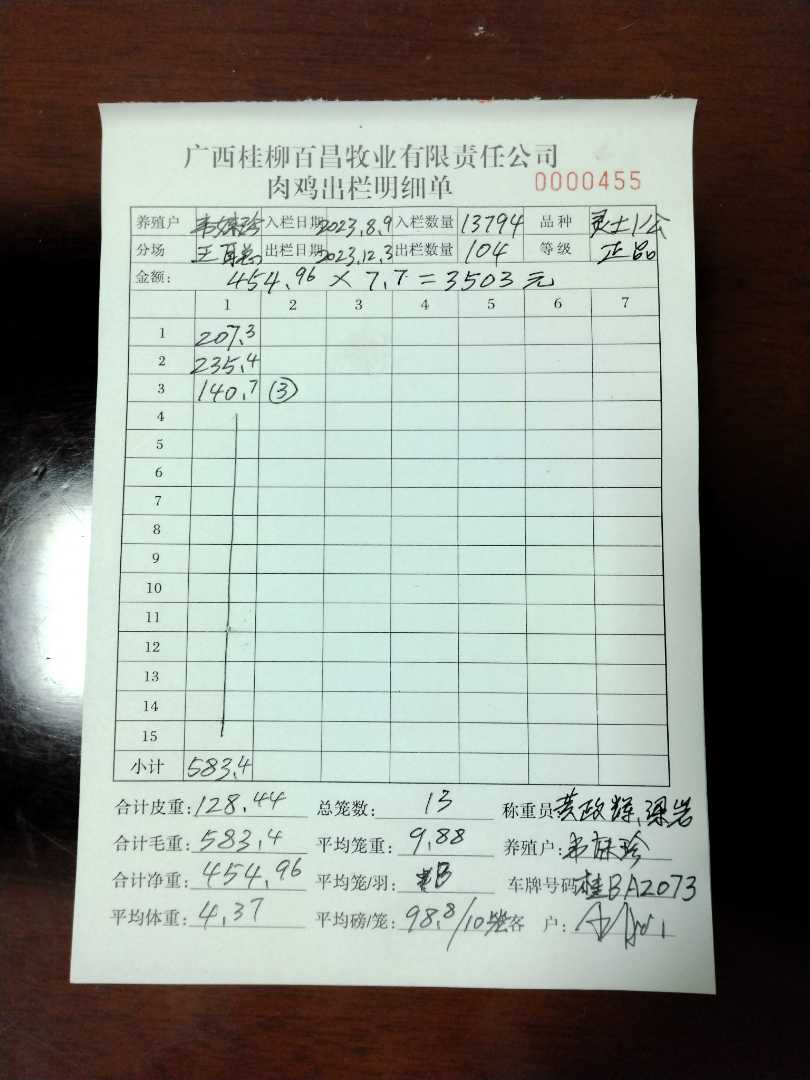 广西桂柳百昌牧业有限责任公司
肉鸡出栏明细单 0000455
养殖户 入栏日期 2023.8.9 入栏数量 13794 品种
分场 出栏日期 2023.12.3 出栏数量 104 等级 正品
金额: 454.96 × 7.7 = 3503 元
1 2 3 4 5 6 7
1 207.3
2 235.4
3 140.7 ③
4
5
6
7
8
9
10
11
12
13
14
15
小计 583.4
合计皮重: 128.44 总笼数: 13 称重员
合计毛重: 583.4 平均笼重: 9.88 养殖户:
合计净重: 454.96 平均笼/羽: 车牌号码 桂BA2073
平均体重: 4.37 平均磅/笼: 98.8/10 客 户: